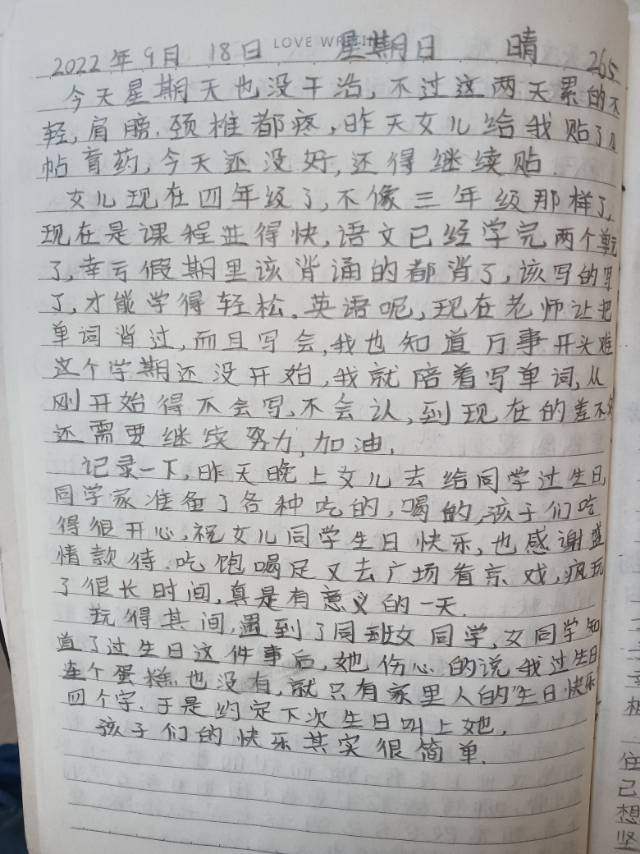 LOVE WR
2022年9月18日 星期日 晴 265
今天星期天也没干活,不过这两天累的不
轻,肩膀.颈椎都疼,昨天女儿给我贴了
帖膏药,今天还没好,还得继续贴.
女儿现在四年级了,不像三年级那样了,
现在是课程进得快,语文已经学完两个单元
了,幸亏假期里该背诵的都背了,该写的写
了,才能学得轻松.英语呢,现在老师让把
单词背过,而且写会,我也知道万事开头难
这个学期还没开始,我就陪着写单词,从
刚开始得不会写,不会认,到现在的差不多
还需要继续努力,加油,
记录一下,昨天晚上女儿去给同学过生日
同学家准备了各种吃的,喝的,孩子们吃
得很开心,祝女儿同学生日快乐,也感谢盛
情款待.吃饱喝足又去广场看京戏,疯玩
了很长时间,真是有意义的一天.
玩得其间,遇到了同班女同学,女同学知
道了过生日这件事后,她伤心的说我过生日
连个蛋糕也没有,就只有家里人的"生日快乐
四个字.于是约定下次生日叫上她,
孩子们的快乐其实很简单.
相
住
己
想
坚